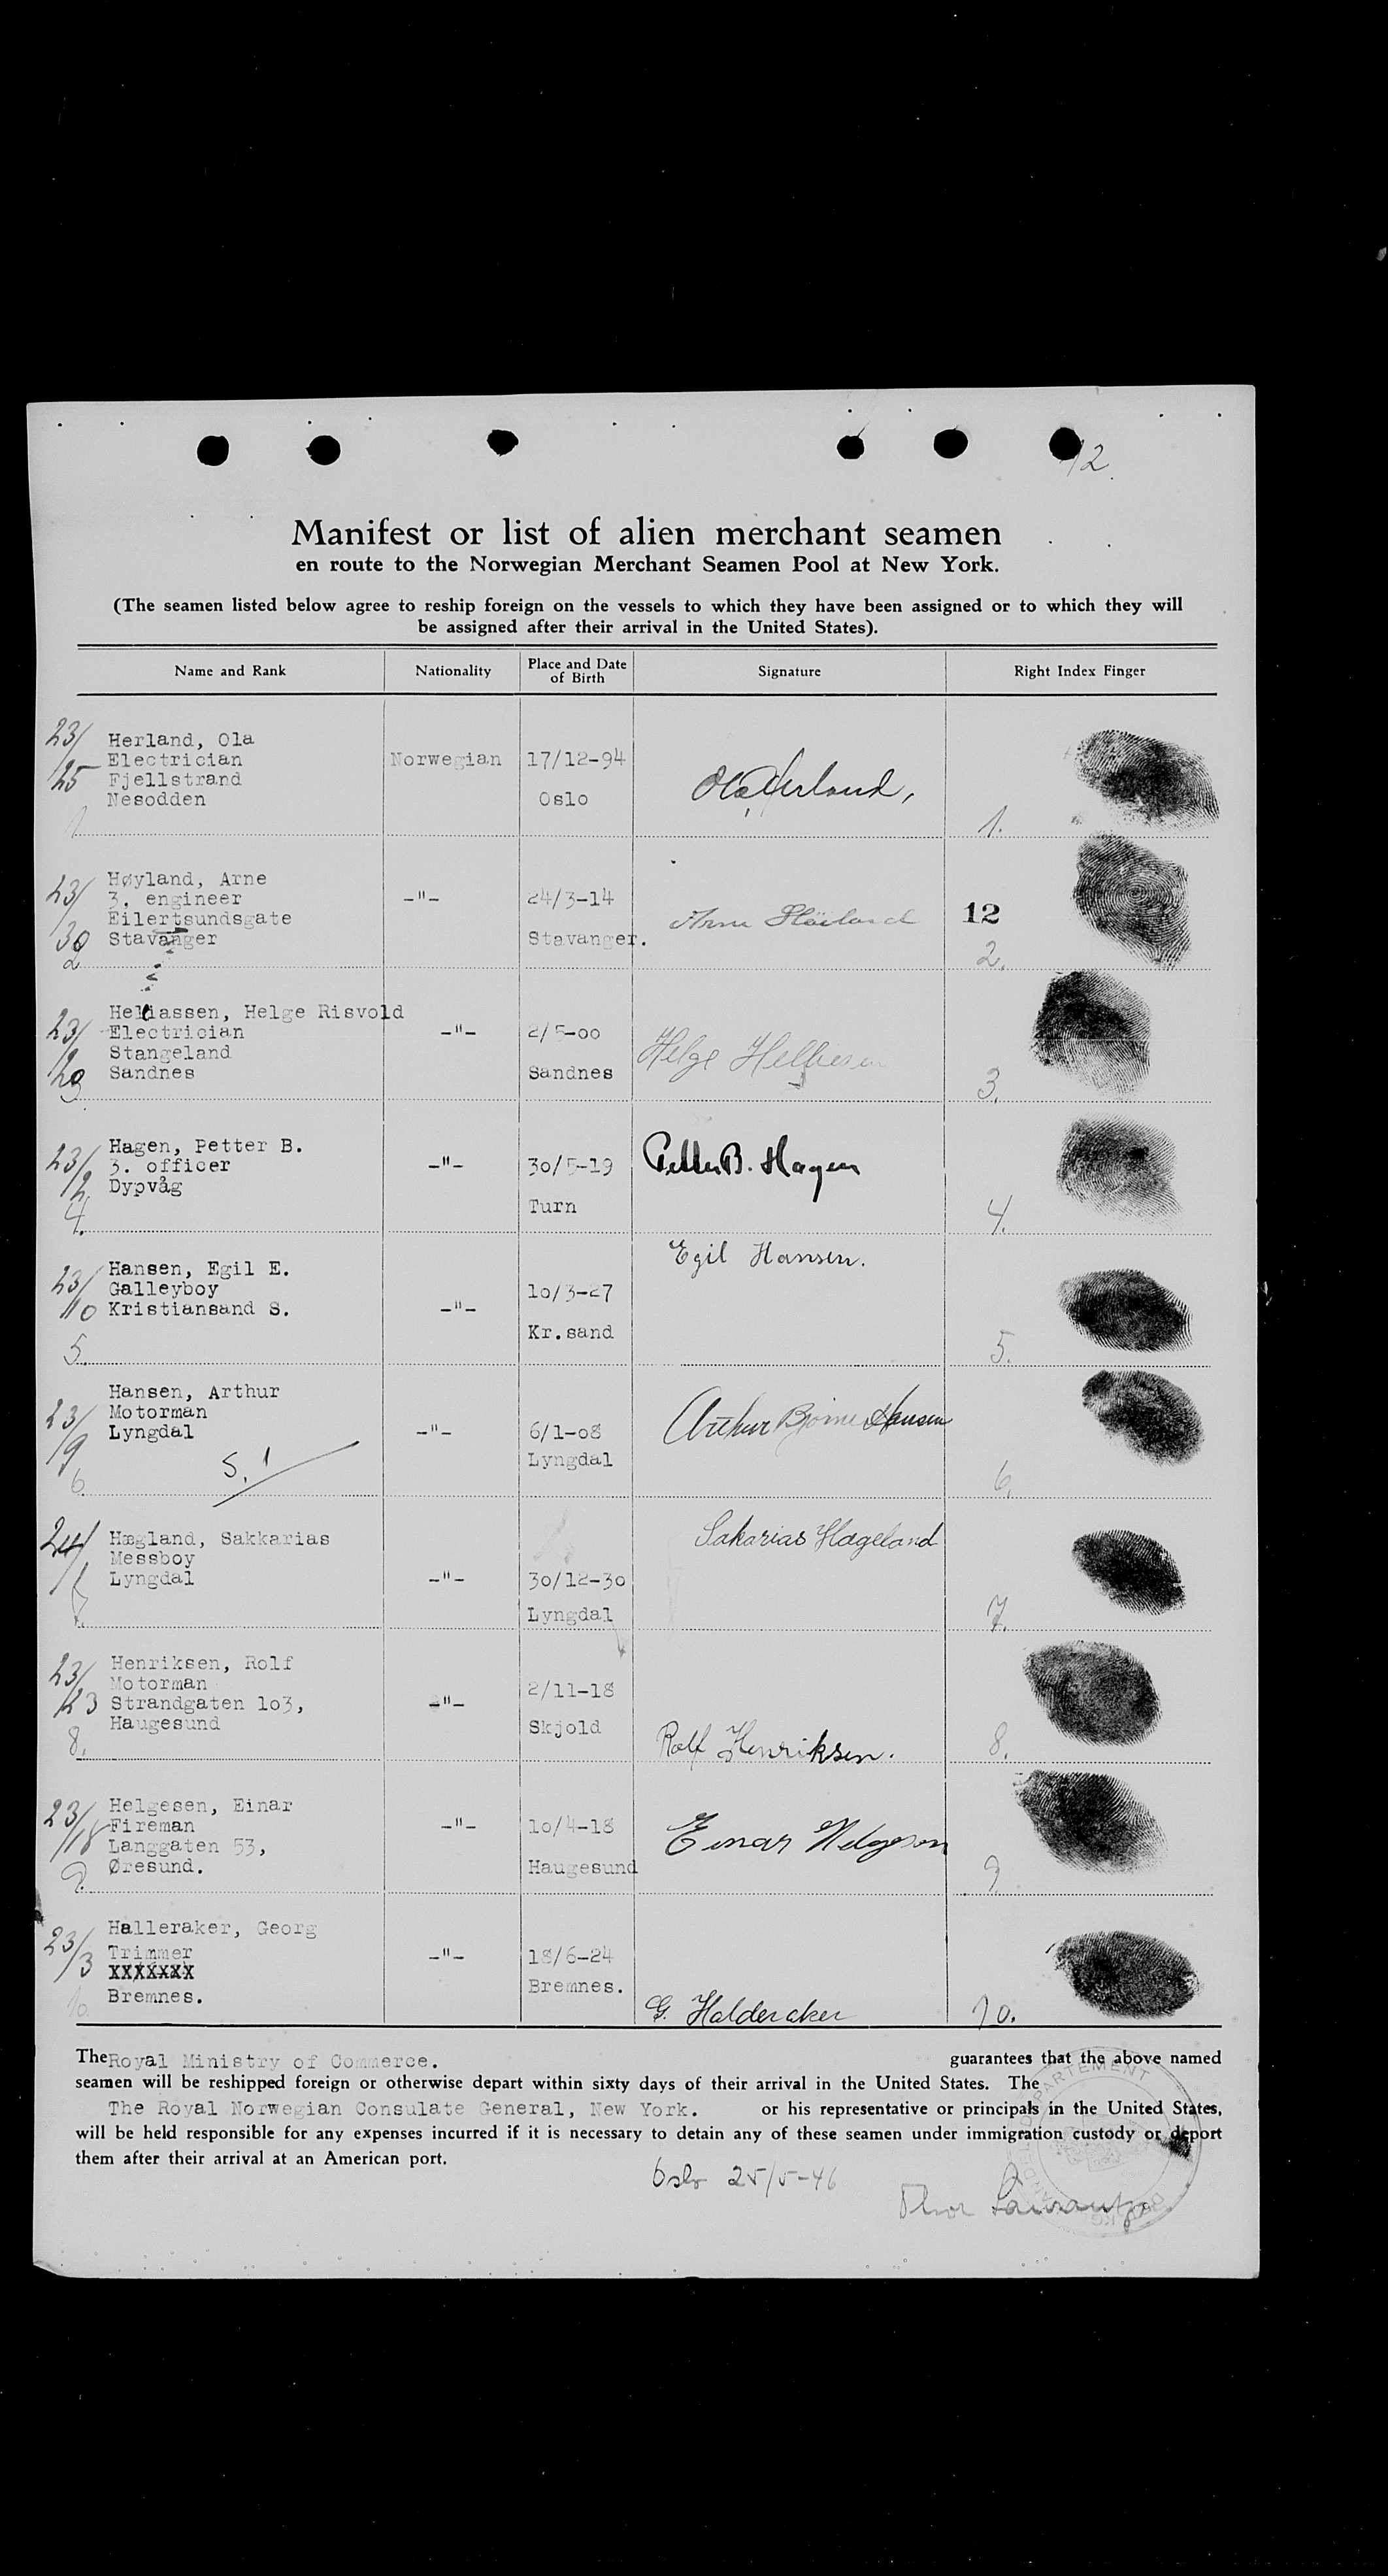 12
Manifest or list of alien merchant seamen
en route to the Norwegian Merchant Seamen Pool at New York.
(The seamen listed below agree to reship foreign on the vessels to which they have been assigned or to which they will
be assigned after their arrival in the United States).
Name and Rank Nationality Place and Date of Birth Signature Right Index Finger
23/25 Herland, Ola
Electrician Norwegian 17/12-94
Fjellstrand
Nesodden Oslo Ola Herland,
1. 1.
23/30 Høyland, Arne
3. engineer -"- 24/3-14
Eilertsundsgate 12
Stavanger Stavanger. Arne Höiland
2. 2.
23/20 Heliassen, Helge Risvold
Electrician -"- 2/5-00
Stangeland
Sandnes Sandnes Helge
3. 3.
23/2 Hagen, Petter B.
3. officer -"- 30/5-19 Petter B. Hagen
Dypvåg
Turn
4. 4.
Egil Hansen.
23/10 Hansen, Egil E.
Galleyboy 10/3-27
Kristiansand S. -"-
Kr.sand
5. 5.
23/9 Hansen, Arthur
Motorman Arthur Bjørne Hansen
Lyngdal -"- 6/1-08
Lyngdal
S. 1
6. 6.
24/1 Hægland, Sakkarias Sakarias Hægeland
Messboy
Lyngdal -"- 30/12-30
Lyngdal
7. 7.
23/23 Henriksen, Rolf
Motorman 2/11-18
Strandgaten 103, -"-
Haugesund Skjold
8. Rolf Henriksen. 8.
23/18 Helgesen, Einar
Fireman -"- 10/4-18
Langgaten 53, Einar Helgesen
Øresund. Haugesund
9. 9.
23/3 Halleraker, Georg
Trimmer -"- 18/6-24
XXXXXXX
Bremnes. Bremnes.
10. G. Halderaker 10.
The Royal Ministry of Commerce. guarantees that the above named
seamen will be reshipped foreign or otherwise depart within sixty days of their arrival in the United States. The
The Royal Norwegian Consulate General, New York. or his representative or principals in the United States,
will be held responsible for any expenses incurred if it is necessary to detain any of these seamen under immigration custody or deport
them after their arrival at an American port.
Oslo 25/5-46
Thor